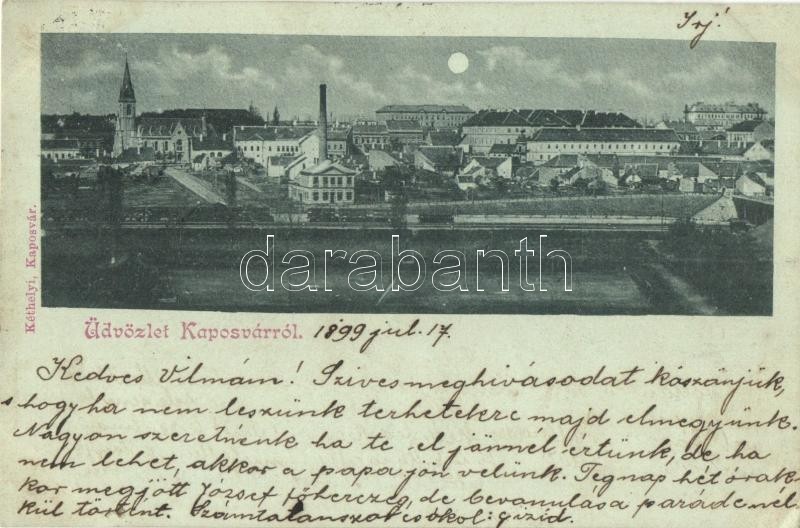 Irj!
darabanth
Kéthelyi, Kaposvár.
Üdvözlet Kaposvárról. 1899 jul. 17.
Kedves Vilmám! Szives meghivásodat köszönjük,
s hogy ha nem leszünk terhetekre majd elmegyünk.
Nagyon szeretnénk ha te el jönnél értünk, de ha
nem lehet, akkor a papa jön velünk. Tegnap hét órak-
kor megjött József főherczeg, de bevonulása parádé nél-
kül történt. Számtalanszor csókol: Gizid.